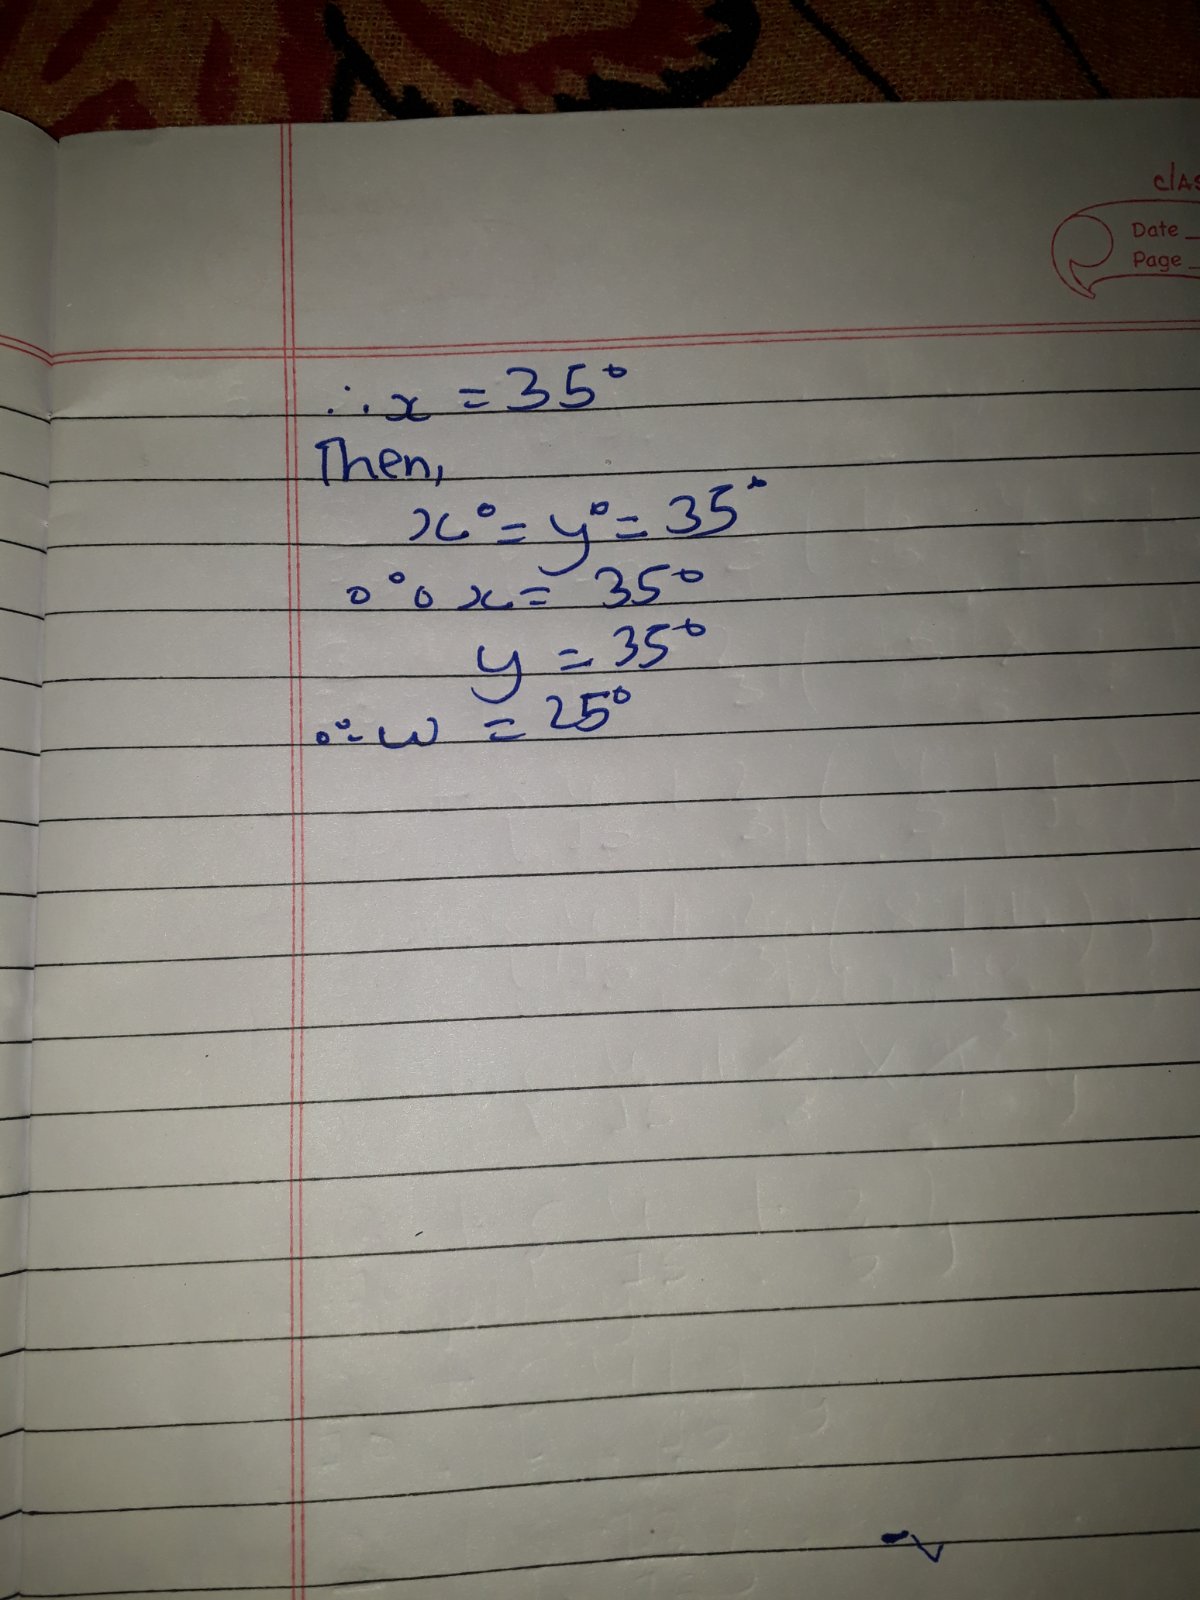 clas
Date
Page
∴ x = 35°
Then,
x° = y° = 35°
∴ x = 35°
y = 35°
∴ w = 25°